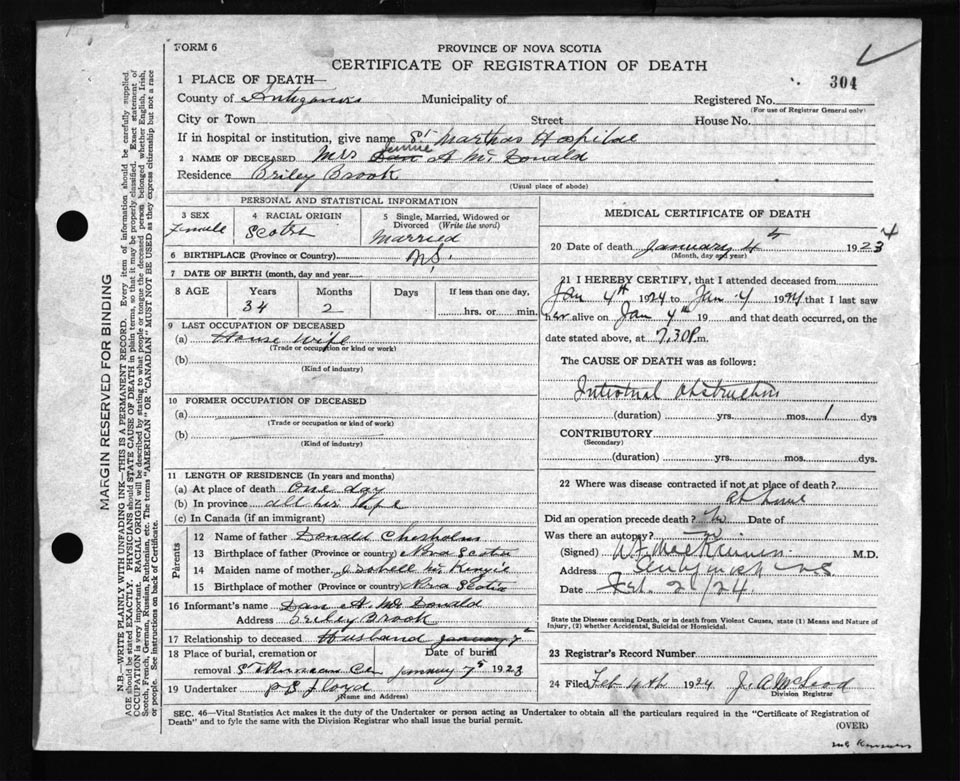 FORM 6
PROVINCE OF NOVA SCOTIA
CERTIFICATE OF REGISTRATION OF DEATH
304
1 PLACE OF DEATH—
County of Antigonish Municipality of Registered No.
(For use of Registrar General only)
City or Town Street House No.
If in hospital or institution, give name St Marthas Hospital
Jennie
2 NAME OF DECEASED Mrs Dan A McDonald
Residence Briley Brook
(Usual place of abode)
MARGIN RESERVED FOR BINDING
N.B.—WRITE PLAINLY WITH UNFADING INK—THIS IS A PERMANENT RECORD. Every item of information should be carefully supplied.
AGE should be stated EXACTLY. PHYSICIANS should STATE CAUSE OF DEATH in plain terms, so that it may be properly classified. Exact statement of
OCCUPATION is very important. RACIAL ORIGIN will be described by stating to what people or tongue the deceased person belonged whether English, Irish,
Scotch, French, German, Russian, Ruthenian, etc. The terms "AMERICAN" OR "CANADIAN" MUST NOT BE USED as they express citizenship but not a race
or people. See instructions on back of Certificate.
PERSONAL AND STATISTICAL INFORMATION
3 SEX
Female
4 RACIAL ORIGIN
Scotch
5 Single, Married, Widowed or
Divorced (Write the word)
Married
6 BIRTHPLACE (Province or Country) N.S.
7 DATE OF BIRTH (month, day and year
8 AGE Years Months Days If less than one day,
34 2 hrs. or min.
9 LAST OCCUPATION OF DECEASED
(a) House Wife
(Trade or occupation or kind or work)
(b)
(Kind of industry)
10 FORMER OCCUPATION OF DECEASED
(a)
(Trade or occupation or kind of work)
(b)
(Kind of industry)
11 LENGTH OF RESIDENCE (In years and months)
(a) At place of death One day
(b) In province all his life
(c) In Canada (if an immigrant)
Parents
12 Name of father Donald Chisholm
13 Birthplace of father (Province or country) Nova Scotia
14 Maiden name of mother Isobell McKenzie
15 Birthplace of mother (Province or country) Nova Scotia
16 Informant's name Dan A. McDonald
Address Briley Brook
17 Relationship to deceased Husband January 7th
18 Place of burial, cremation or Date of burial
removal St Ninian Cem January 7th 1923
19 Undertaker P S Floyd
(Name and Address)
MEDICAL CERTIFICATE OF DEATH
20 Date of death January 4th 1923 4
(Month, day and year)
21 I HEREBY CERTIFY, that I attended deceased from
Jan 4th 1924 to Jan 4 1924 that I last saw
her alive on Jan 4th 19 and that death occurred, on the
date stated above, at 7.30 P.m.
The CAUSE OF DEATH was as follows:
Intestinal Obstruction
(duration) yrs. mos. 1 dys
CONTRIBUTORY
(Secondary)
(duration) yrs. mos. dys.
22 Where was disease contracted if not at place of death?
at home
Did an operation precede death? No Date of
Was there an autopsy? no
(Signed) W.F. MacKinnon M.D.
Address Antigonish NS
Date Feb. 2/24.
State the Disease causing Death, or in death from Violent Causes, state (1) Means and Nature of
Injury, (2) whether Accidental, Suicidal or Homicidal.
23 Registrar's Record Number
24 Filed Feb 4th 1924 J. A McLeod
Division Registrar
SEC. 46—Vital Statistics Act makes it the duty of the Undertaker or person acting as Undertaker to obtain all the particulars required in the "Certificate of Registration of
Death" and to fyle the same with the Division Registrar who shall issue the burial permit.
(OVER)